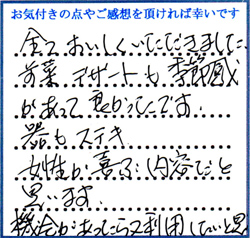 お気付きの点やご感想を頂ければ幸いです
全ておいしくいただきました
前菜、デザートも季節感
があって良かったです。
器もステキ
女性が喜ぶ内容だと
思います。
機会があったら又利用したいと思